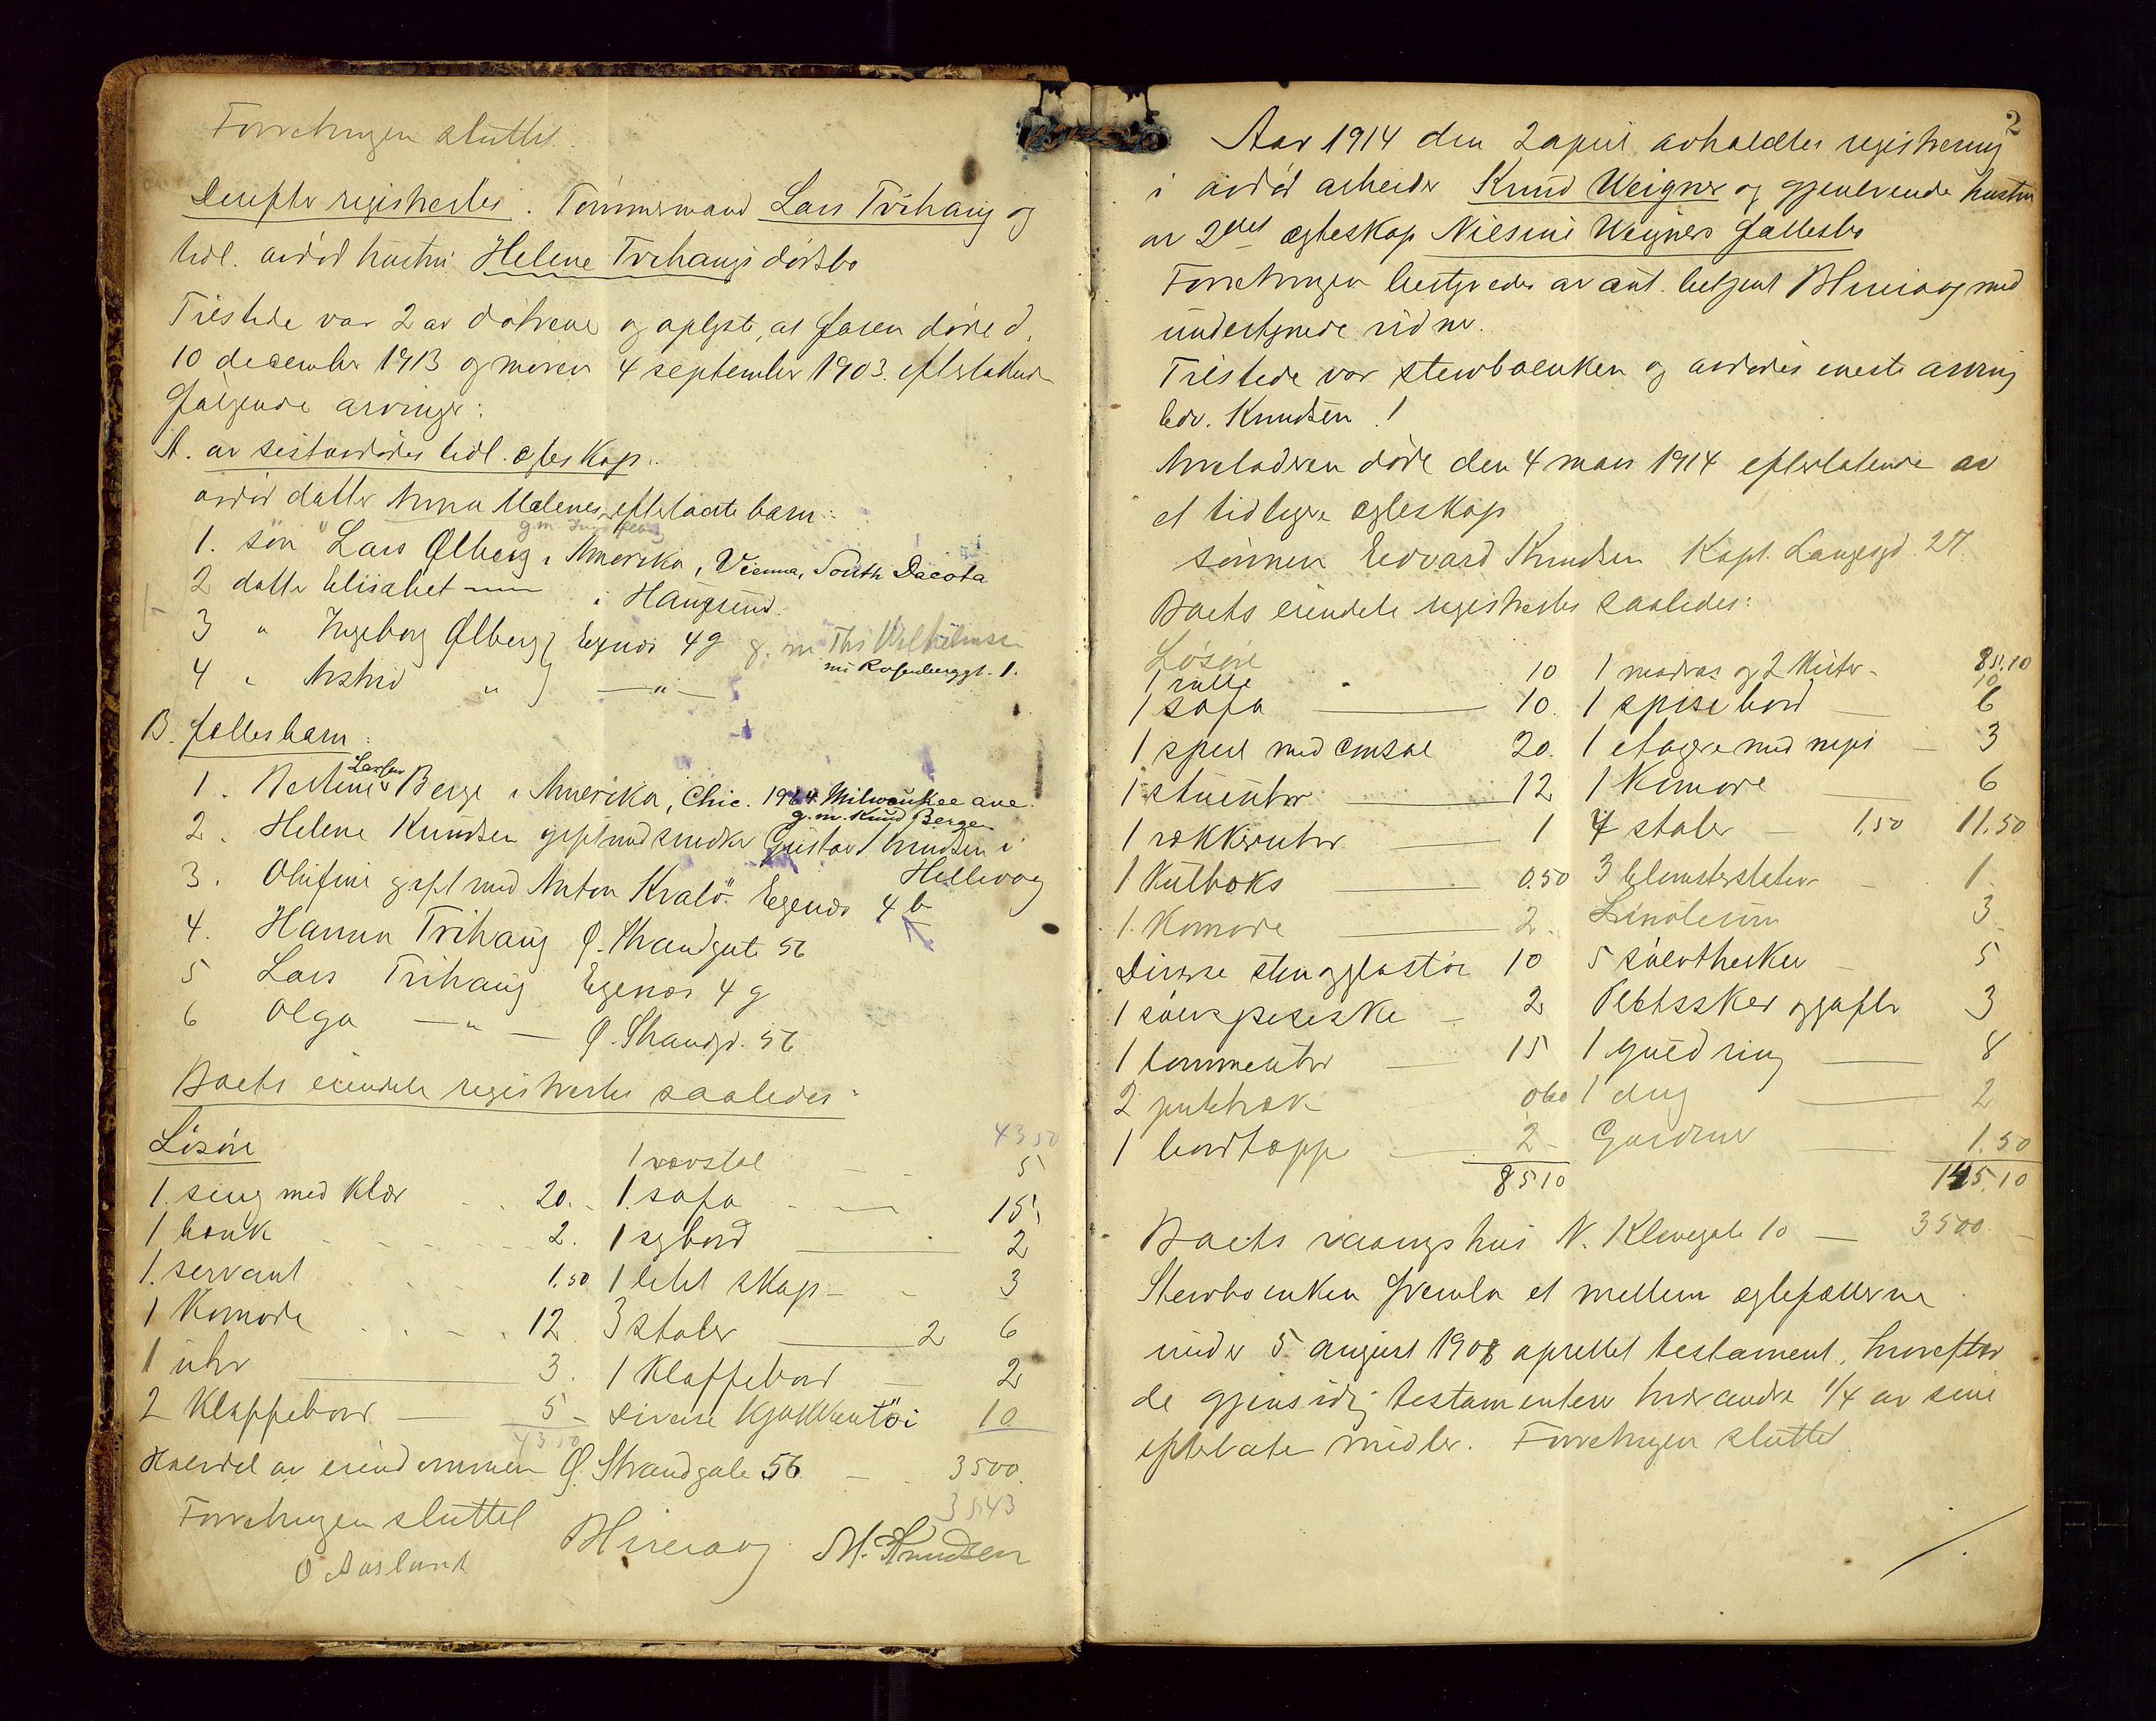 Forretningen sluttet.
Derefter registrertes. Tømmermand Lars Tvihaug og
tidl. avdød hustru Helene Tvihaugs dødsbo
Tilstede var 2 av døtrene og oplyste, at faren døde d.
10 december 1913 og moren 4 september 1903. efterlatende
følgende arvinger:
A. av sistavdødes tidl. egteskap.
avdød datter Anna Malenes efterlatte barn:
g.m.
1. søn Lars Ølberg i Amerika, Vienna, South Dacota
2 datter Elisabet i Haugesund.
3 " Ingeborg Ølberg Egenes 4 g g. m Ths Vilhelmsen
nu Rosenberggt. 1.
4 " Astrid " — " —
B. fellesbarn:
Larsen
1. Bertine Berge i Amerika, Chic. 1964 Milwaukee ave.
g.m. Knud Bergen
2. Helene Knudsen gift med snedker Gustav Knudsen i
Hillevåg
3. Olufine gift med Anton Kvalø Egenes 4 b
4. Hanna Tvihaug Ø. Strandgate 56
5 Lars Tvihaug Egenes 4 g
6 Olga — " — Ø. Strandgt. 56
Boets eiendele registrertes saaledes:
Løsøre 43 50
1 vevstol 5
1. seng med klær 20. 1. sofa 15
1 benk 2. 1 sybord 2
1. servant 1.50 1 litet skap 3
1 Komode 12 3 stoler 2 6
1 uhr 3. 1 Klaffebord 2
2 Klappebord 5 Diverse Kjøkkentøi 10
43 50
Halvdel av eiendommen Ø. Strandgate 56 3500
3543
Forretningen sluttet
O Aasland M. Knudsen
2
Aar 1914 den 2 april avholdtes registrering
i avdød arbeider Knud Weigner og gjenlevende hustru
av 2det egteskap Nilsine Weigners fellesbo
Forretningen bestyredes av aut. betjent med
undertegnede vidner.
Tilstede var sterboenken og avdødes eneste arving
Edv. Knudsen !
Arveladeren døde den 4 mars 1914 efterlatende av
et tidligere egteskap
sønnen Edvard Knudsen Kapt. Langesgd. 27.
Boets eiendele registrertes saaledes:
Løsøre 85.10
1 rulle 10 1 madras og 2 10
1 sofa 10. 1 spisebord 6
1 speil med consol 20. 1 etagere med nips 3
1 stueuhr 12 1 Komode 6
1 vækkeruhr 1 7 stoler 1,50 11.50
1 Kulboks 0.50 3 blomsterstativer 1
1. Komode 2. Linoleum 3
Diverse sten og glastøi 10 5 sølvtheskeer 5
1 sølvspiseske 2 Plettskeer og gafler 3
1 lommeuhr 15 1 guldring 8
2 putetræk 060 1 dug 2
1 bordteppe 2 Gardiner 1.50
8510 145.10
Boets vaaningshus N. Klevegate 10 — 3500
Sterboenken fremla et mellem egtefellerne
under 5 august 1908 oprettet testament, hvorefter
de gjensidig testamenterer hverandre 1/4 av sine
efterlatte midler. Forretningen sluttet